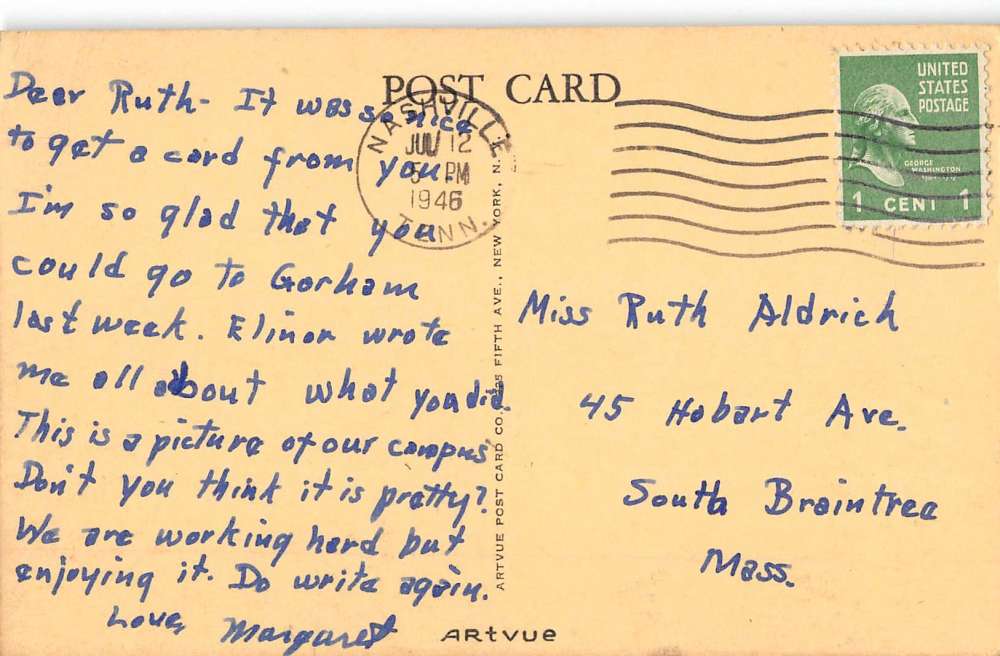 Dear Ruth - It was so nice
to get a card from you.
I'm so glad that you
could go to Gorham
last week. Elinor wrote
me all about what you did.
This is a picture of our campus
Don't you think it is pretty?
We are working hard but
enjoying it. Do write again.
Love, Margaret
POST CARD
NASHVILLE
JUN 12
5 PM
1946
TENN.
UNITED
STATES
POSTAGE
GEORGE
WASHINGTON
1 CENT 1
ARTVUE POST CARD CO., 225 FIFTH AVE., NEW YORK, N.
Miss Ruth Aldrich
45 Hobart Ave.
South Braintree
Mass.
ARtvue